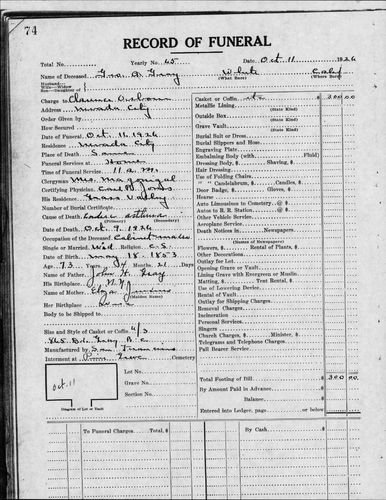 74
RECORD OF FUNERAL
Total No. Yearly No. 45 Date Oct. 11 1926
Name of Deceased Geo. A. Gray White Calif
(What Race) (Where Born)
Husband—
Wife—Widow } of
Son—Daughter
Charge to Clarence Osborn
Address Nevada City
Order Given by
How Secured
Date of Funeral Oct. 11, 1926
Residence Nevada City
Place of Death Same
Funeral Services at Home
Time of Service 11 a.m.
Clergyman Mrs.
Certifying Physician Carl P. Jones
His Residence Grass Valley
Number of Burial Certificate
Cause of Death Cardiac asthma
(Primary) (Secondary)
Date of Death Oct. 9, 1926
Occupation of the Deceased Cabinet maker
Single or Married Wid. Religion C. S.
Date of Birth May 18 - 1853
Age 73 Years 4 Months 21 Days
Name of Father John Gray
His Birthplace N.Y.
Name of Mother Eliza
(Maiden Name)
Her Birthplace
Body to be Shipped
Size and Style of Casket or Coffin 6/3
Gray
Manufactured by San Francisco
Interment at Pine Grove Cemetery
Lot No.
Grave No.
Section No.
Oct. 11
Diagram of Lot or Vault
Casket or Coffin etc $ 300.00
Metallic Lining
(State Kind)
Outside Box
(State Kind)
Grave Vault
(State Kind)
Burial Suit or Dress
Burial Slippers and Hose
Engraving Plate
Embalming Body (with Fluid)
Dressing Body, $ Shaving, $
Hair Dressing
Use of Folding Chairs
" " Candelabrum, $ Candles, $
Door Badge, $ Gloves, $
Hearse
Auto Limousines to Cemetery @ $
Autos to R. R. Station @ $
Other Vehicle Service
Aeroplane Service
Death Notices in Newspapers
(Names of Newspapers)
Flowers, $ Rental of Plants, $
Other Decorations
Outlay for Lot
Opening Grave or Vault
Lining Grave with Evergreen or Muslin
Matting, $ Tent Rental, $
Use of Lowering Device
Rental of Vault
Outlay for Shipping Charges
Removal Charges
Incineration
Personal Services
Singers
Church Charges, $ Minister, $
Telegrams and Telephone Charges
Pall Bearer Service
Total Footing of Bill $ 300.00
By Amount Paid in Advance
Balance $
Entered into Ledger, page or below
To Funeral Charges Total, $ By Cash $